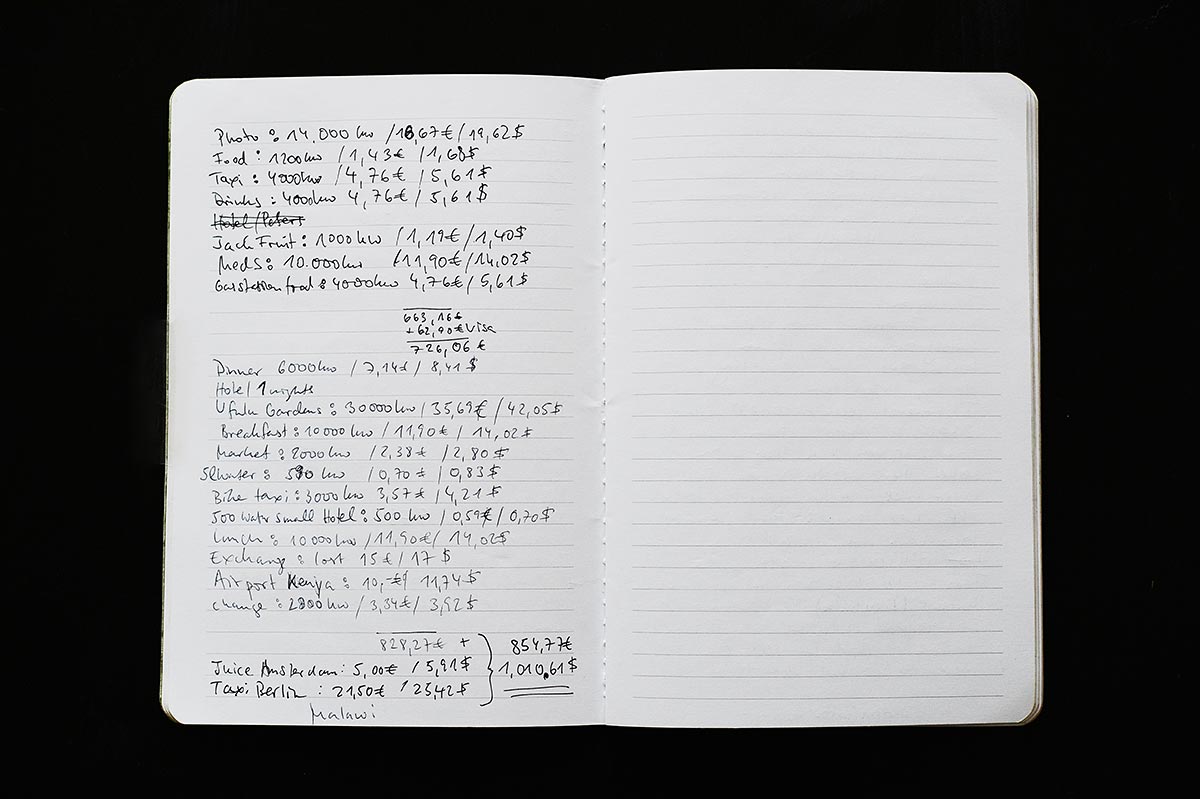 Photo : 14.000kw /16,67€ / 19,62$
Food : 1200kw / 1,43€ / 1,68$
Taxi : 4000kw / 4,76€ / 5,61$
Drinks : 4000kw 4,76€ / 5,61$
Hotel/Peters
Jack Fruit : 1000kw / 1,19€ / 1,40$
Meds : 10.000kw / 11,90€ / 14,02$
food : 4000kw 4,76€ / 5,61$
663,16€
+ 62,90€ Visa
726,06 €
Dinner 6000kw / 7,14€ / 8,41$
Hotel 1 nights
Ufulu Gardens : 30000kw / 35,69€ / 42,05$
Breakfast : 10000kw / 11,90€ / 14,02$
Market : 2000kw / 2,38€ / 2,80$
kw / 0,70€ / 0,83$
Bike taxi : 3000kw 3,57€ / 4,21$
500 water small Hotel : 500kw / 0,59€ / 0,70$
Lunch : 10000kw / 11,90€ / 14,02$
Exchange : lost 15€ / 17$
Airport Kenya : 10,-€/ 11,74$
change : 2800kw / 3,34€ / 3,92$
828,27€ + 854,77€
Juice Amsterdam : 5,00€ / 5,91$ 1,010.61$
Taxi Berlin : 21,50€ / 25,42$
Malawi